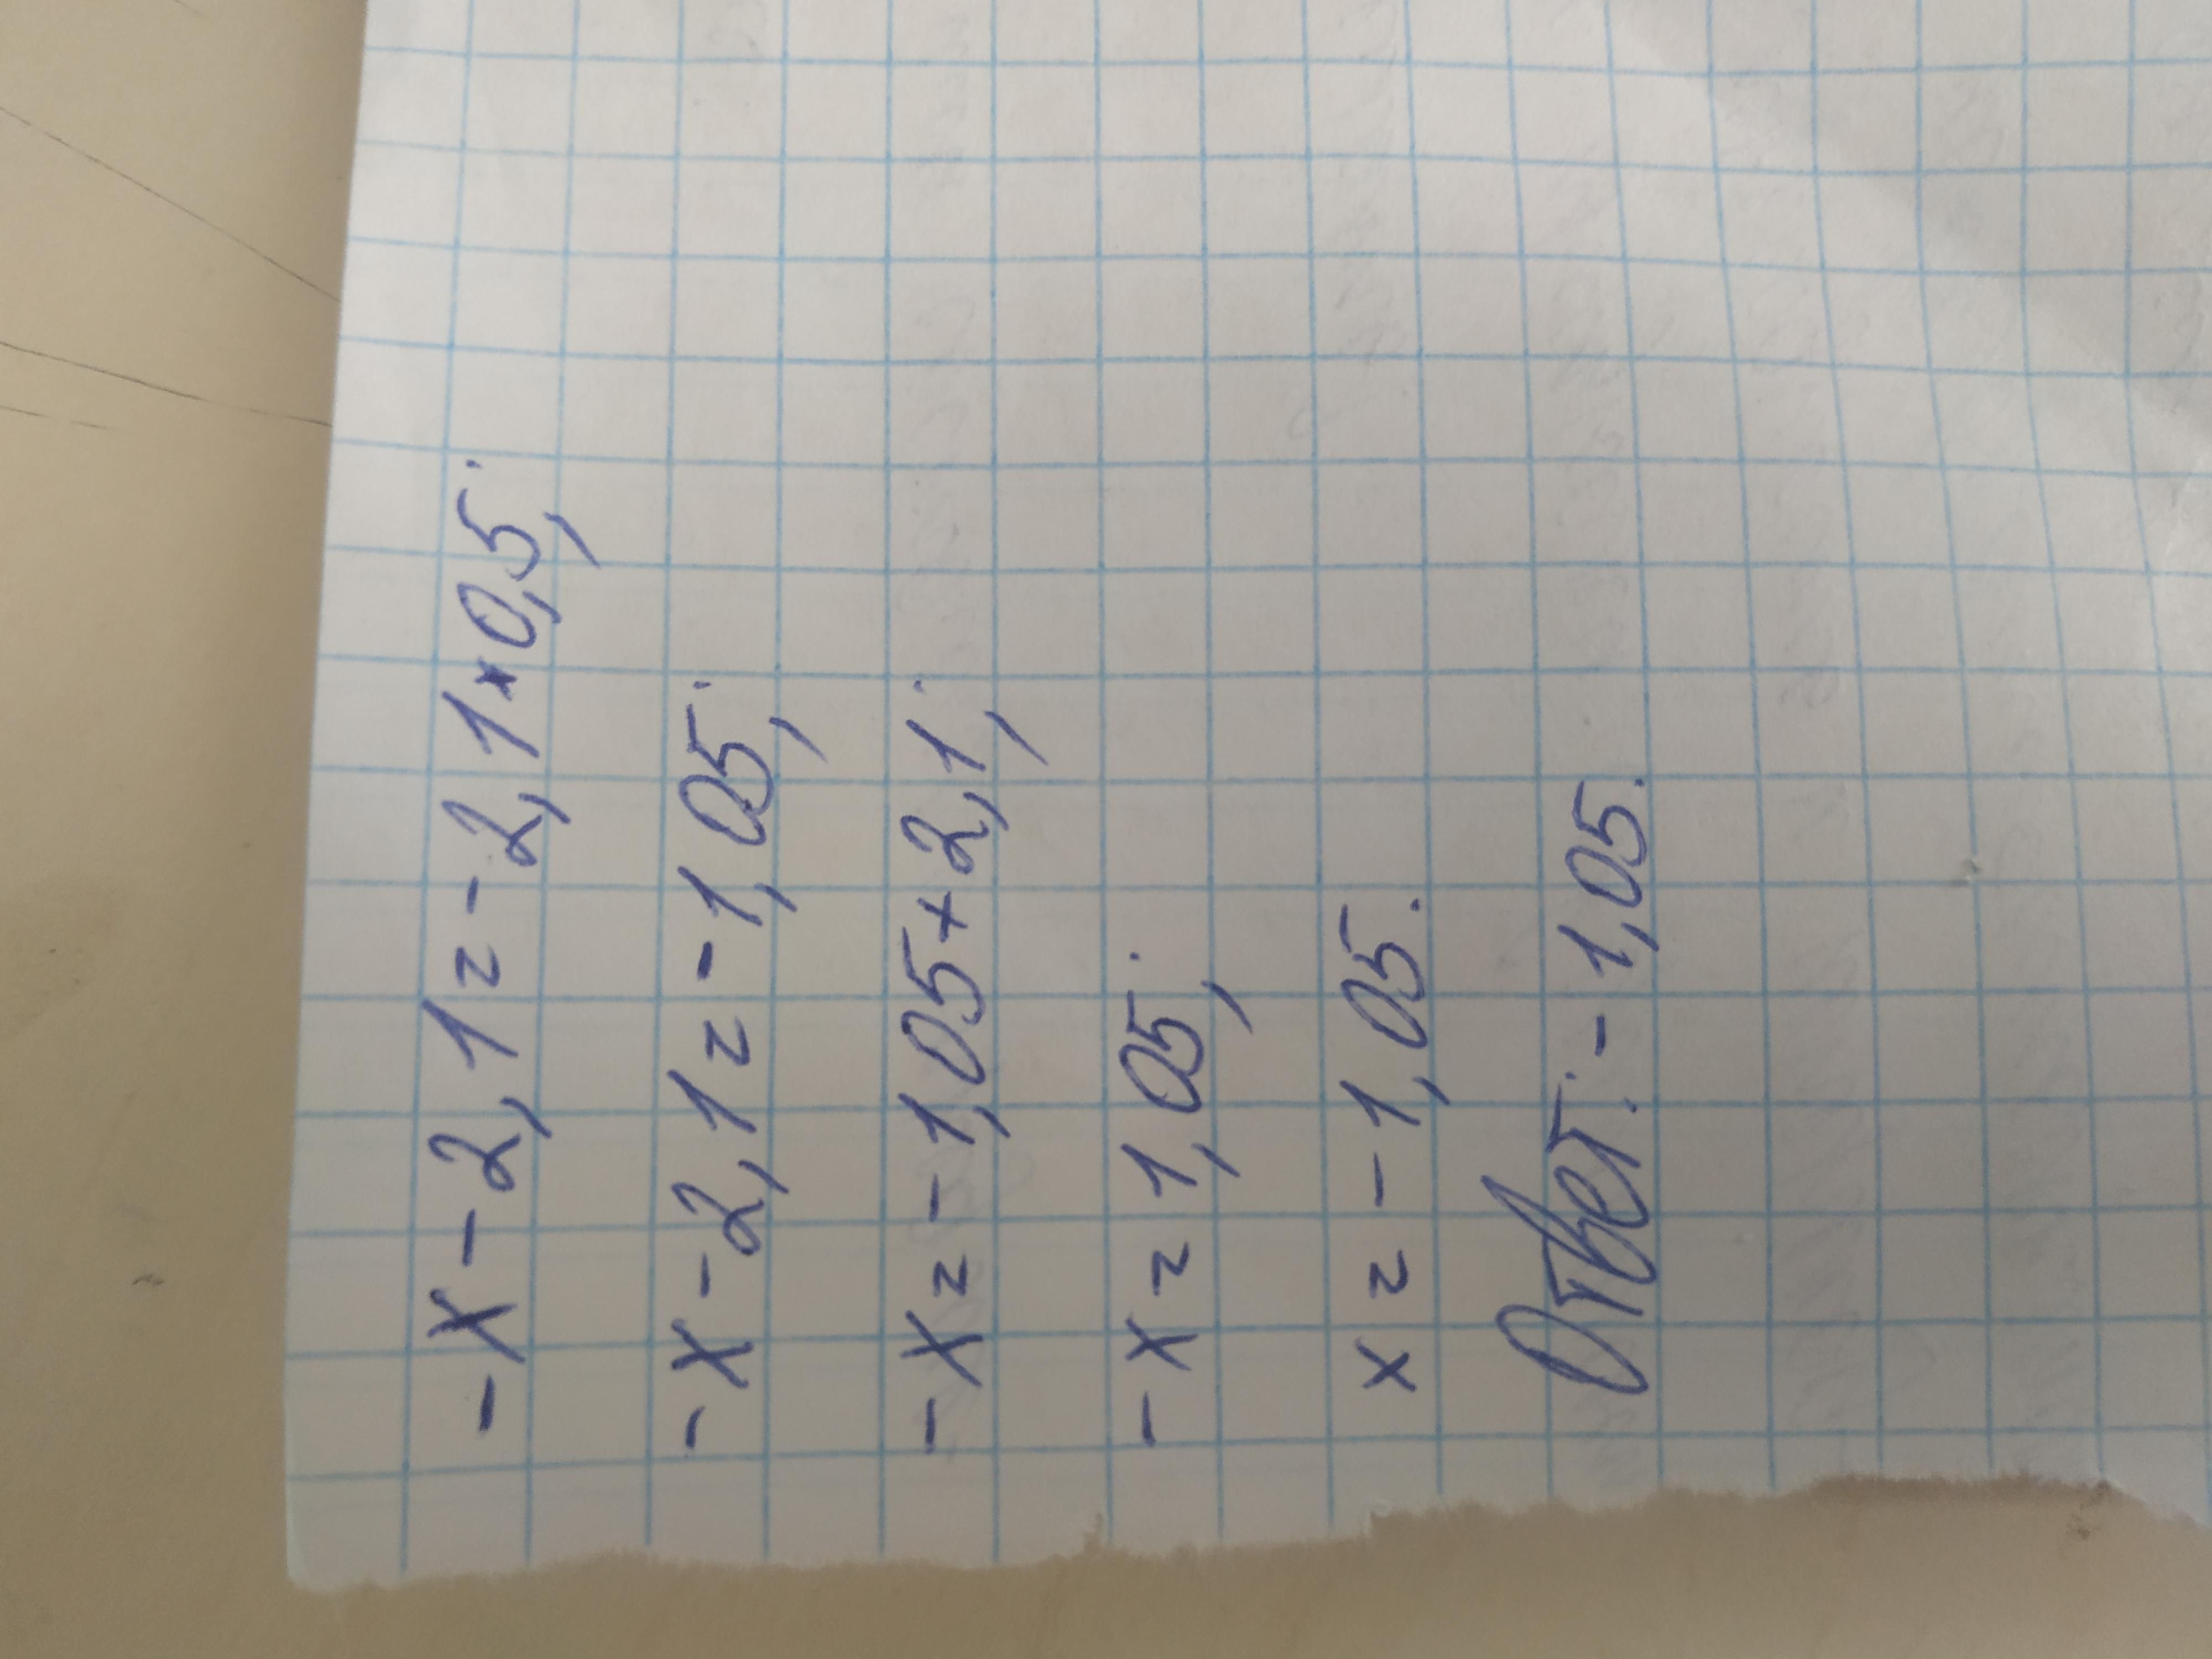 -х-2,1=-2,1*0,5;
-х-2,1=-1,05;
-х=-1,05+2,1;
-х=1,05;
х=-1,05.
Ответ: -1,05.